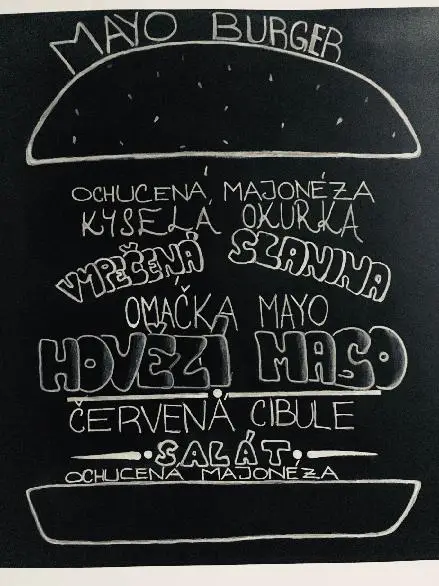 MAYO BURGER
OCHUCENÁ MAJONÉZA
KYSELÁ OKURKA
VYPEČENÁ SLANINA
OMAČKA MAYO
HOVĚZÍ MASO
ČERVENÁ CIBULE
SALÁT
OCHUCENÁ MAJONÉZA